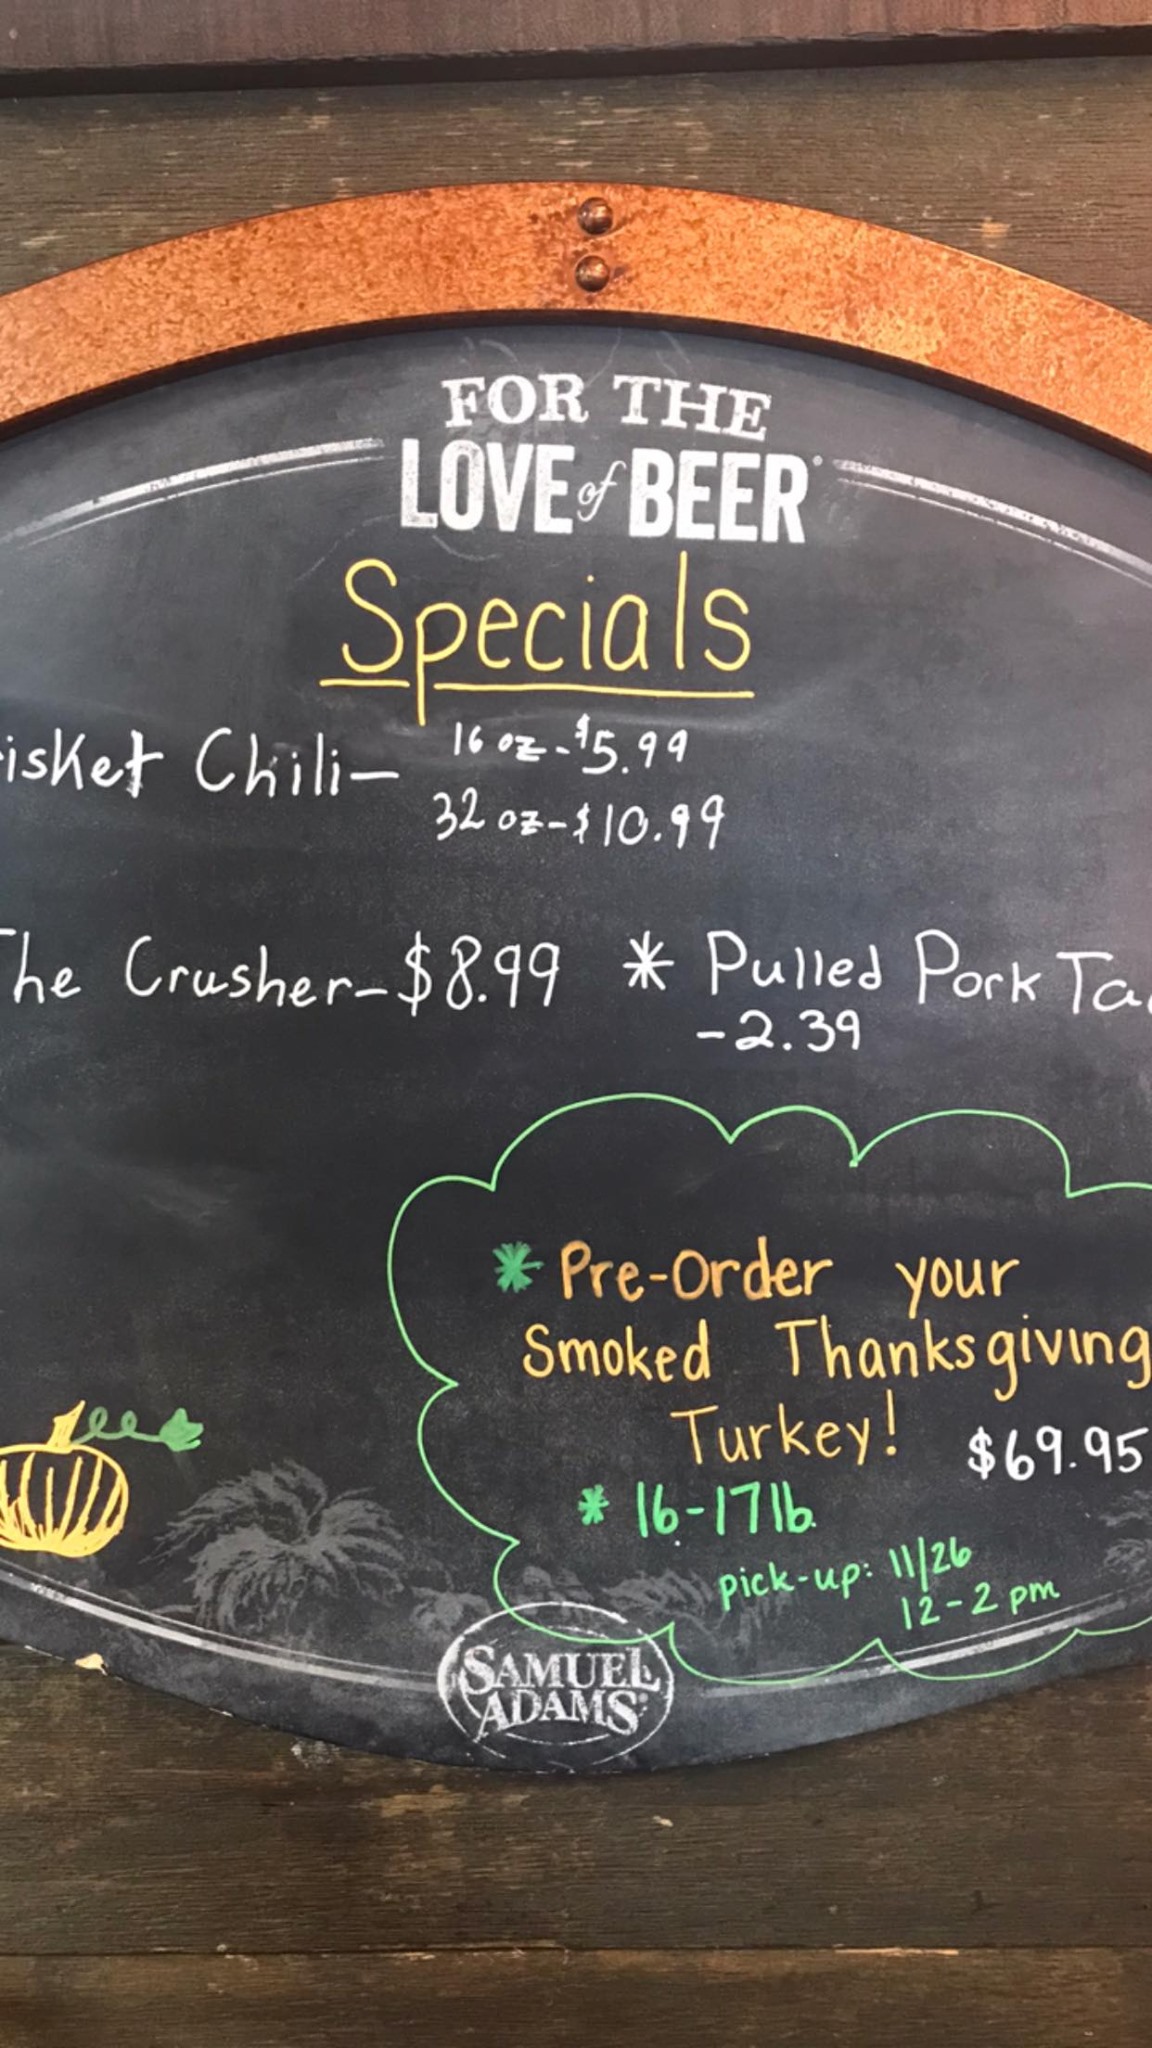 FOR THE
LOVE of BEER®
Specials
isket Chili- 16 oz-$5.99
32 oz-$10.99
The Crusher-$8.99 * Pulled Pork Ta
-2.39
* Pre-Order your
Smoked Thanksgiving
Turkey! $69.95
* 16-17lb.
pick-up: 11/26
12-2 pm
SAMUEL
ADAMS